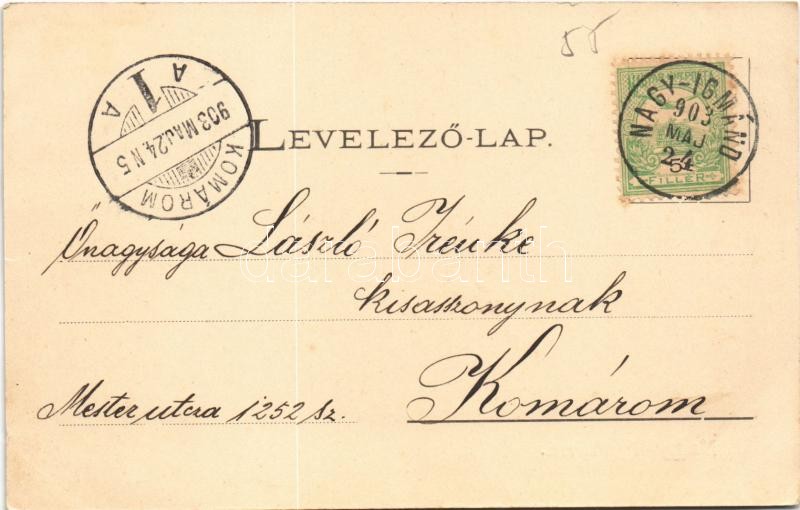 55
NAGY-IGMÁND
903
MAJ
24
5
FILLÉR
KOMÁROM
903 MAJ. 24 N 5
A 1 A
LEVELEZŐ-LAP.
Őnagysága László Irénke
kisasszonynak
Komárom
Mester utcza 1252 sz.
darabanth